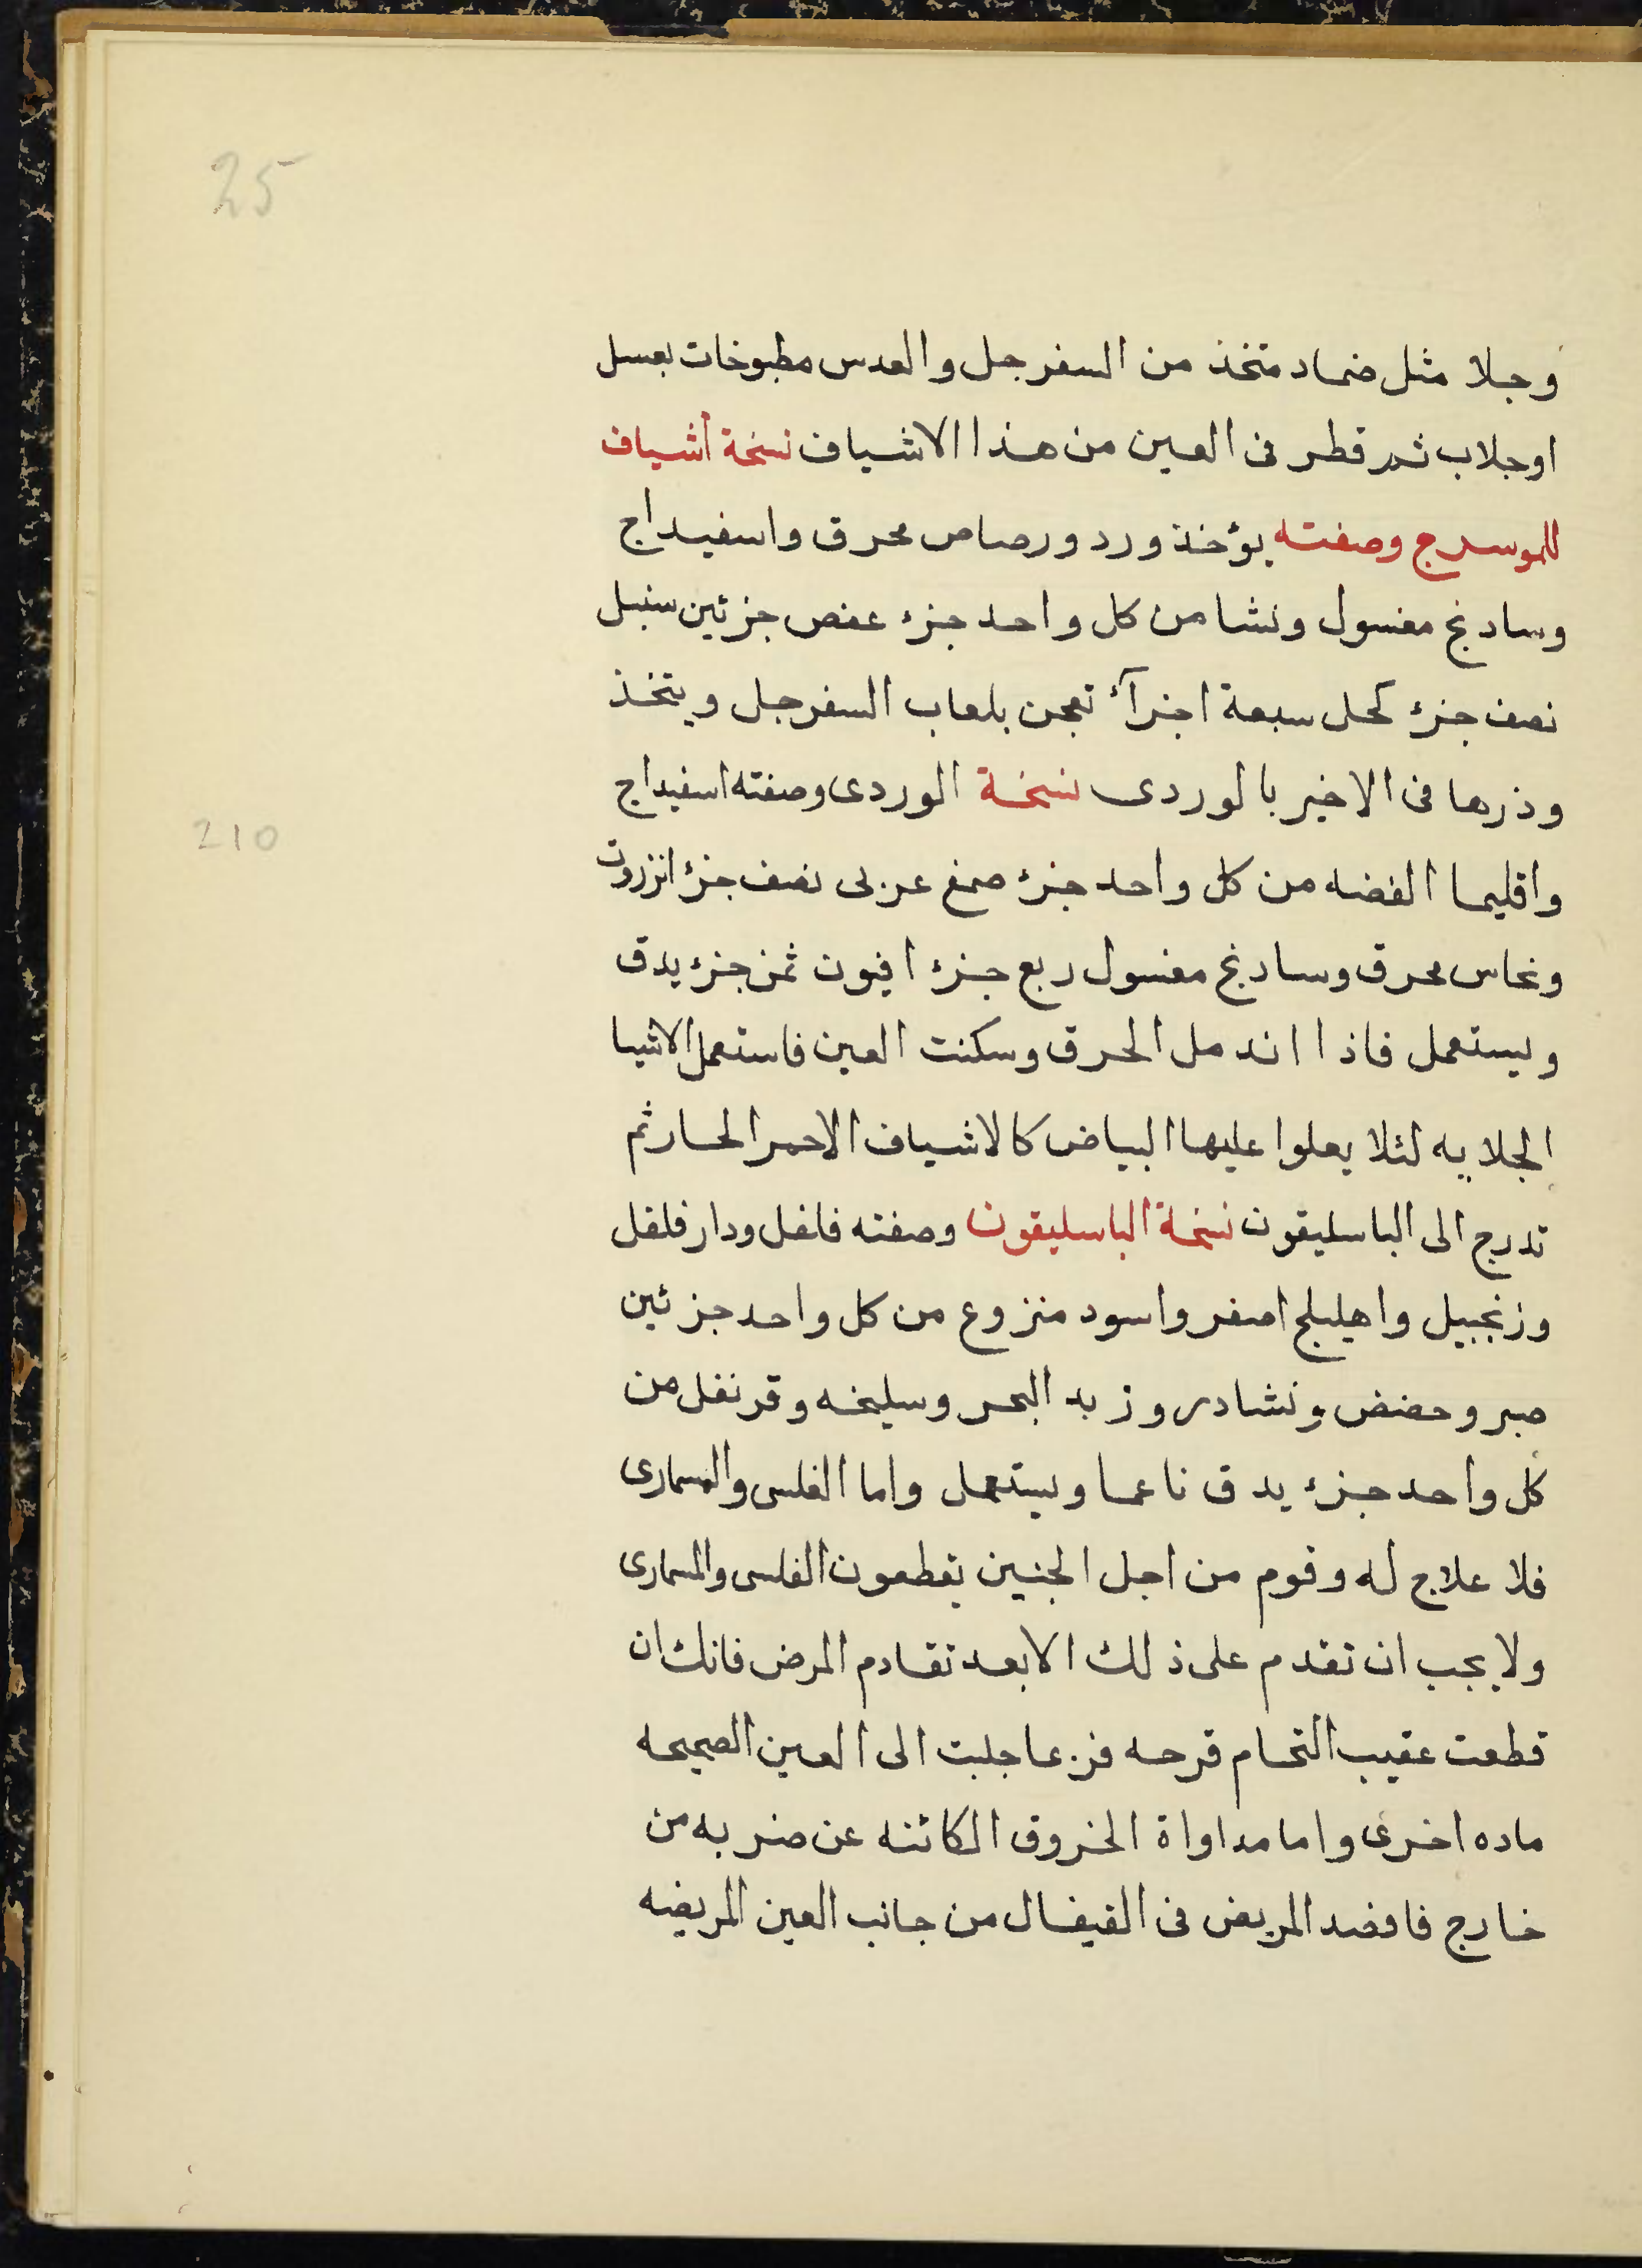 25
وجلا مثل ضماد متخذ من السفرجل والعدس مطبوخات بعسل
اوجلاب ثم قطر فى العين من هذا الاشياف نسخة اشياف
للموسرج وصفته يؤخذ ورد ورصاص محرق واسفيداج
وسادنج مغسول ونشا من كل واحد جزء عفص جزئين سنبل
نصف جزء كحل سبعة اجزآء تعجن بلعاب السفرجل ويتخذ
وذرها فى الاخير بالوردى نسخة الوردى وصفته اسفيداج
210
واقليما الفضه من كل واحد جزء صمغ عربى نصف جزء انزروت
ونحاس محرق وسادنج مغسول ربع جزء افيون ثمن جزء يدق
ويستعمل فاذا اندمل الحرق وسكنت العين فاستعمل الاشيا
الجلايه لئلا يعلوا عليها البياض كالاشياف الاحمر الحار ثم
تدرج الى الباسليقون نسخة الباسليقون وصفته فلفل ودار فلفل
وزنجبيل واهليلج اصفر واسود منزوع من كل واحد جزئين
صبر وحضض ونشادر وزبد البحر وسليخه وقرنفل من
كل واحد جزء يدق ناعما ويستعمل واما الفلسى والمسمارى
فلا علاج له وقوم من اجل الجنين يقطعون الفلسى والمسمارى
ولا يجب ان تقدم على ذلك الا بعد تقادم المرض فانك ان
قطعت عقيب التحام قرحه فربما جلبت الى العين الصحيحه
ماده اخرى واما مداواة الخروق الكائنه عن ضربه من
خارج فافصد المريض فى القيفال من جانب العين المريضه